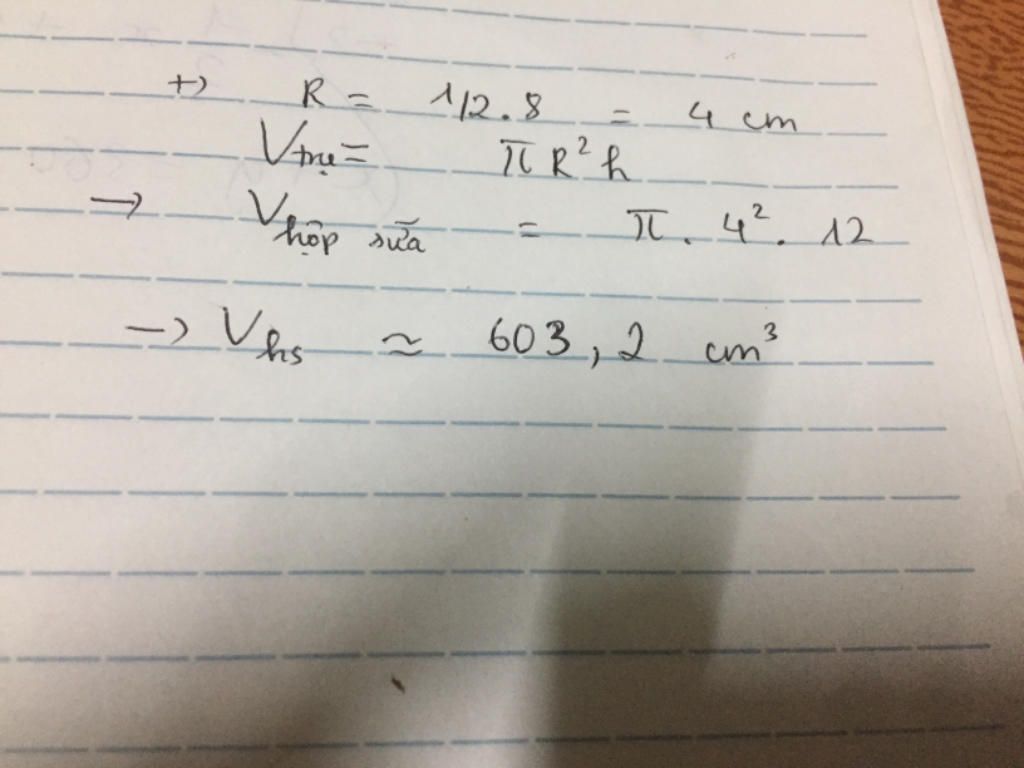 +) R = 1/2.8 = 4 cm
Vtrụ = πR²h
→ Vhộp sữa = π . 4² . 12
→ Vhs ≈ 603,2 cm³